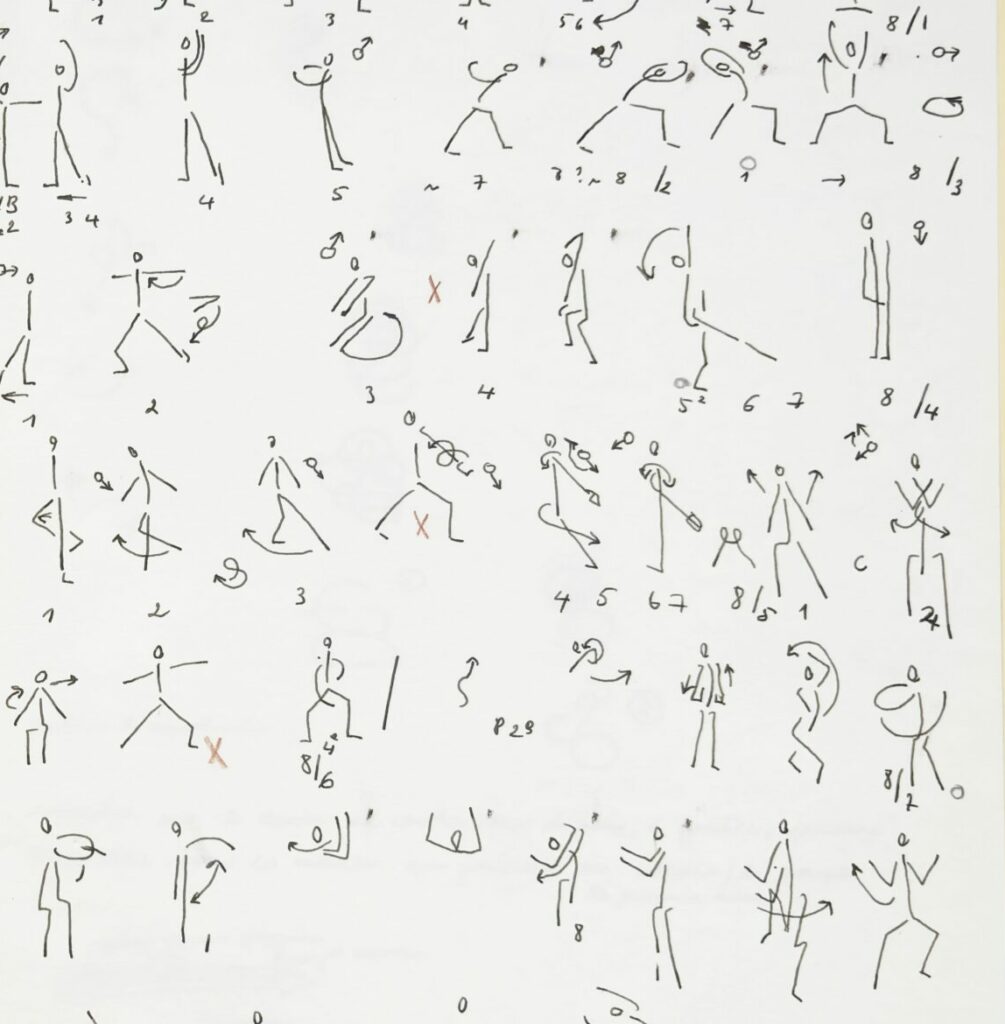 1 2 3 4 5 6 7 8/1
3 4 4 5 ~ 7 3?~ 8 /2 1 → 8 /3
1 2 3 X 4 5² 6 7 8 /4
1 2 3 X 4 5 6 7 8/5 1 C 24
X 8/6 4² P 29 8/7
8